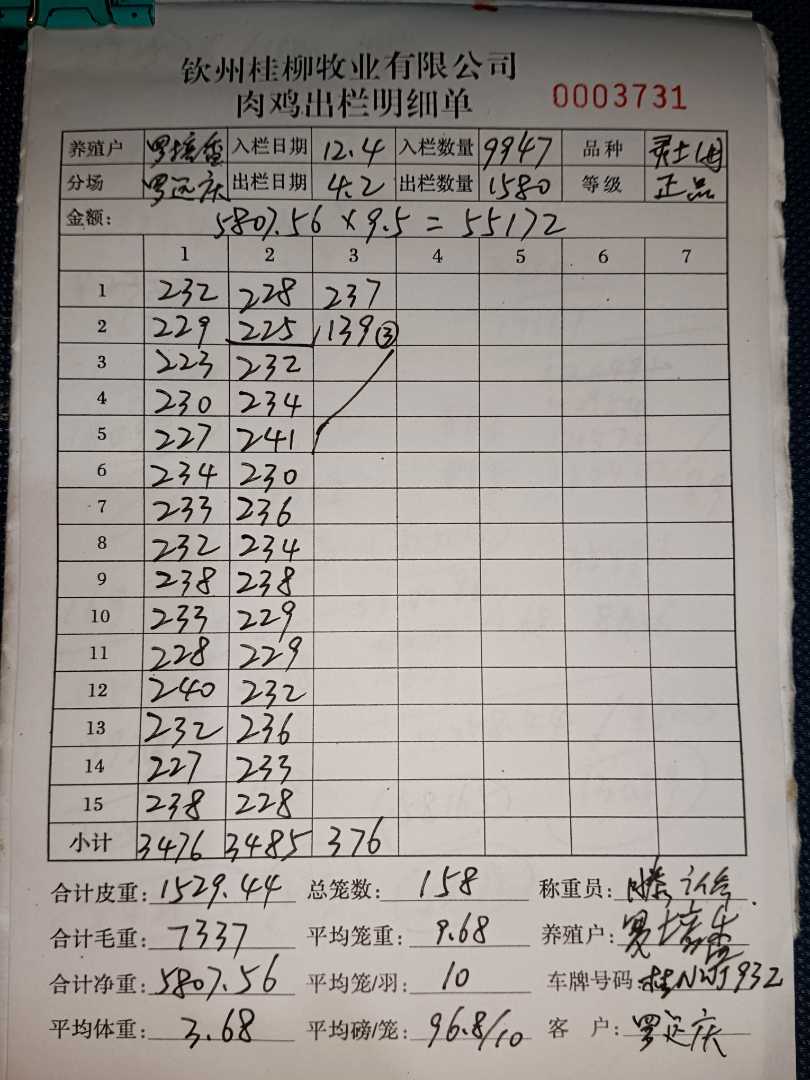 钦州桂柳牧业有限公司
肉鸡出栏明细单 0003731
养殖户 罗培香 入栏日期 12.4 入栏数量 9947 品种 灵土(母)
分场 罗远庆 出栏日期 4.2 出栏数量 1580 等级 正品
金额: 5807.56×9.5=55172
1 2 3 4 5 6 7
1 232 228 237
2 229 225 139③
3 223 232
4 230 234
5 227 241
6 234 230
7 233 236
8 232 234
9 238 238
10 233 229
11 228 229
12 240 232
13 232 236
14 227 233
15 238 228
小计 3476 3485 376
合计皮重: 1529.44 总笼数: 158 称重员:
合计毛重: 7337 平均笼重: 9.68 养殖户: 罗培香
合计净重: 5807.56 平均笼/羽: 10 车牌号码: 桂NWJ932
平均体重: 3.68 平均磅/笼: 96.8/10 客户: 罗远庆